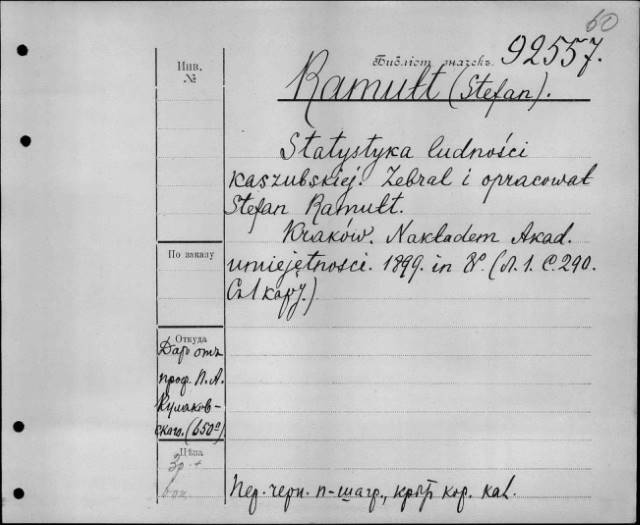 60
Библіот. значекъ. 92557.
Инв. №
Ramułt (Stefan).
Statystyka ludności
kaszubskiej. Zebrał i opracował
Stefan Ramułt.
Kraków. Nakładem Akad.
По заказу
umiejętnosci. 1899. in 8°. (Л. 1. С. 290.
Съ 1 карт.)
Откуда
Даръ отъ
проф. П. А.
Кулаков-
скаго. (650°)
Цѣна
3р. +
Пер. черн. п-шагр., крыт кор. кал.